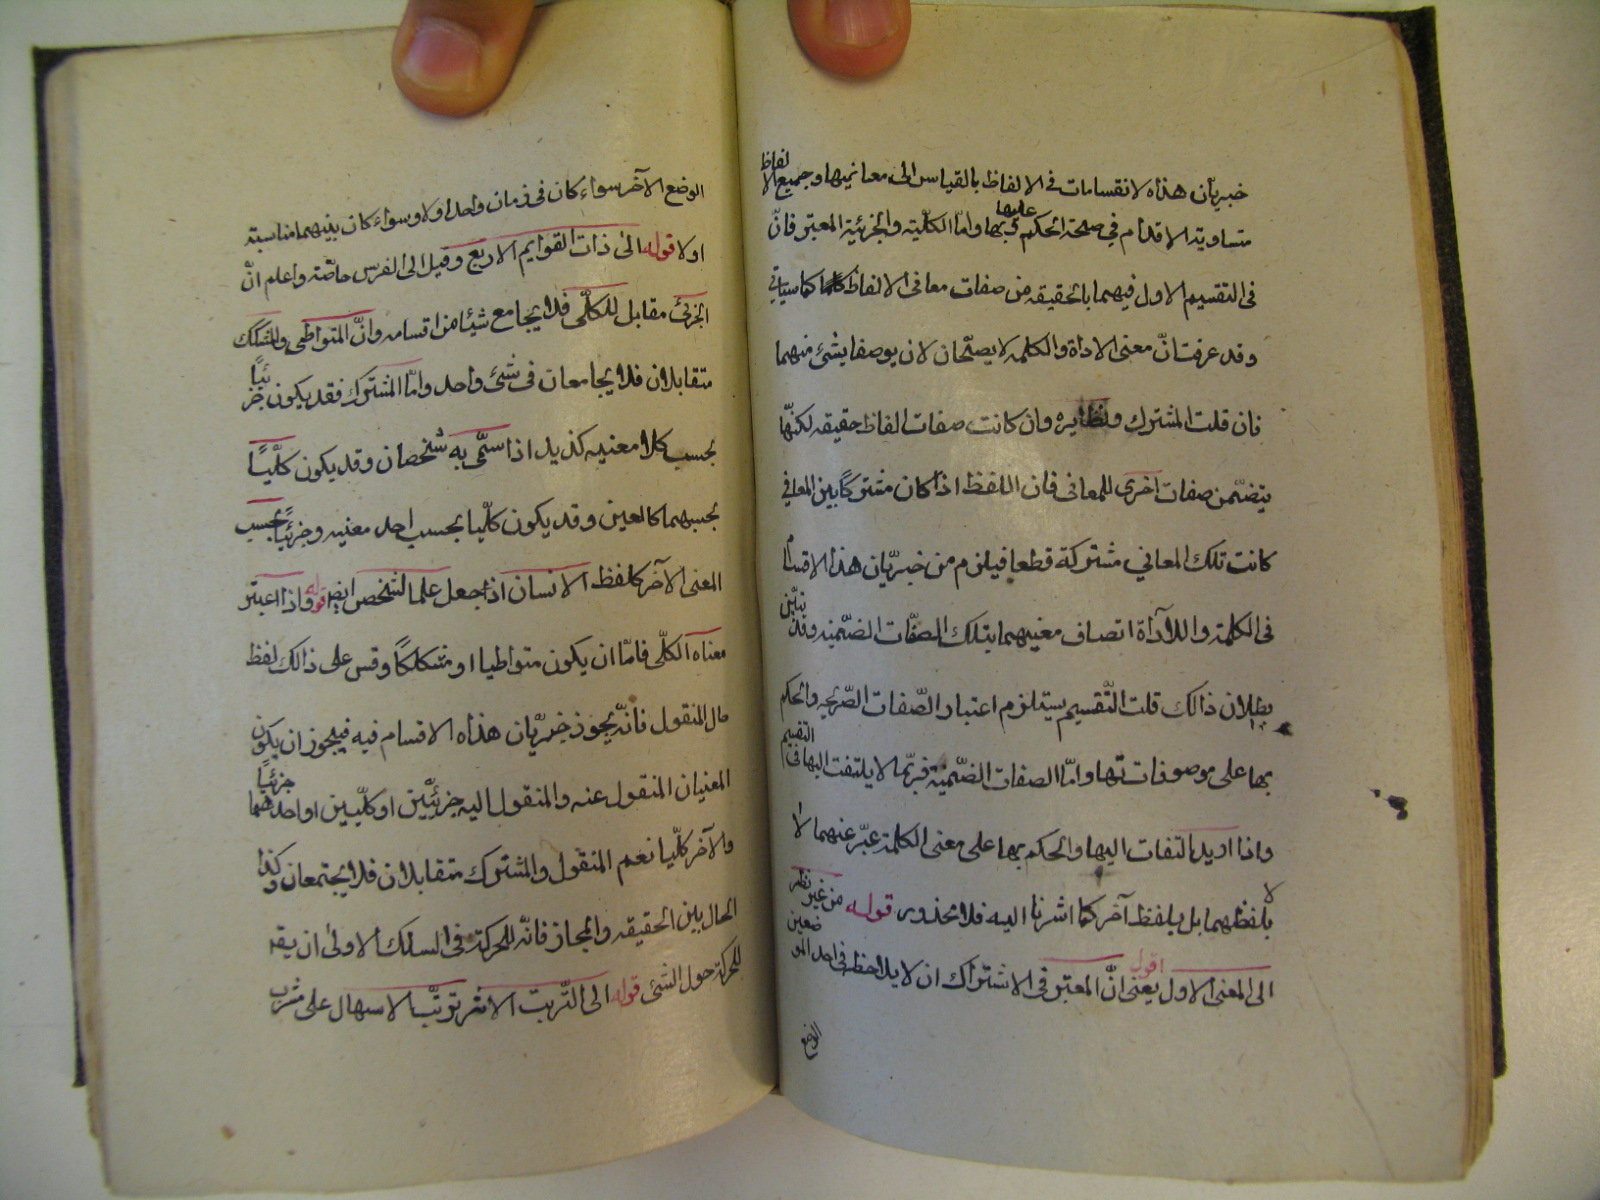 خبريان هذه الانقسامات في الالفاظ بالقياس الى معانيها وجميع الالفاظ
متساوية الاقدام في صحة الحكم عليها وبها واما الكلية والجزئية المعتبر فان
في التقسيم الاول فيهما بالحقيقه من صفات معاني الالفاظ كلها كما سياتي
وقد عرفت انّ معنى الاداة والكلمه لا يصلحان لان يوصفا بشئ منهما
فان قلت المشترك ونظايره وان كانت صفات الفاظ حقيقه لكنّها
يتضمّن صفات اخرى للمعاني فان اللفظ اذا كان مشتركًا بين المعاني
كانت تلك المعاني مشتركة قطعا فيلزم من خبريّان هذا الاقسام
في الكلمة واللاداة اتصاف معنيهما بتلك الصفّات الضّمنيه وقد تبيّن
بطلان ذالك قلت التّقسيم يستلزم اعتبار الصّفات الصّريحه والحكم
بها على موصوفاتها وامّا الصفات الضّمنيّة فربّما لا يلتفت اليها في التقسيم
واذا اريد التفات اليها والحكم بها على معنى الكلمة عبّر عنهما لا
بلفظهما بل بلفظ آخر كما اشرنا اليه فلا محذور قوله من غير نظر
الى المعنى الاول اقول يعنى انّ المعتبر في الاشتراك ان لا يلاحظ في احد الموضعين
الوضع
الوضع الآخر سواء كان في زمان واحد اولا وسواء كان بينهما مناسبة
اولا قوله الى ذات القوايم الاربع وقيل الى الفرس خاصّة واعلم انّ
الجزئى مقابل للكلّى فلا يجامع شيئا من اقسامه وانّ المتواطى والمشكك
متقابلان فلا يجامعان في شئ واحد وامّا المشترك فقد يكون جزئيًا
بحسب كلا معنيه كذيد اذا سمّى به شخصان وقد يكون كلّيًا
بحسبهما كالعين وقد يكون كلّيا بحسب احد معنيه وجزئيًا بحسب
المعنى الآخر كلفظ الانسان اذا جعل علما لشخص ايض قوله واذا اعتبر
معناه الكلّى فامّا ان يكون متواطيا او مشككًا وقس على ذالك لفظ
حال المنقول فانّه يجوز خبريّان هذه الاقسام فيه فيجوز ان يكون
المعنيان المنقول عنه والمنقول اليه جزئيّين او كلّيين او احدهما جزئيًا
والآخر كلّيا نعم المنقول والمشترك متقابلان فلا يجتمعان وكذا
الحال بين الحقيقه والمجاز فانّه للحركة في السلك الاولى ان يقه
للحركة حول الشئ قوله الى التّربت الاثر ترتّب الاسهال على شرب